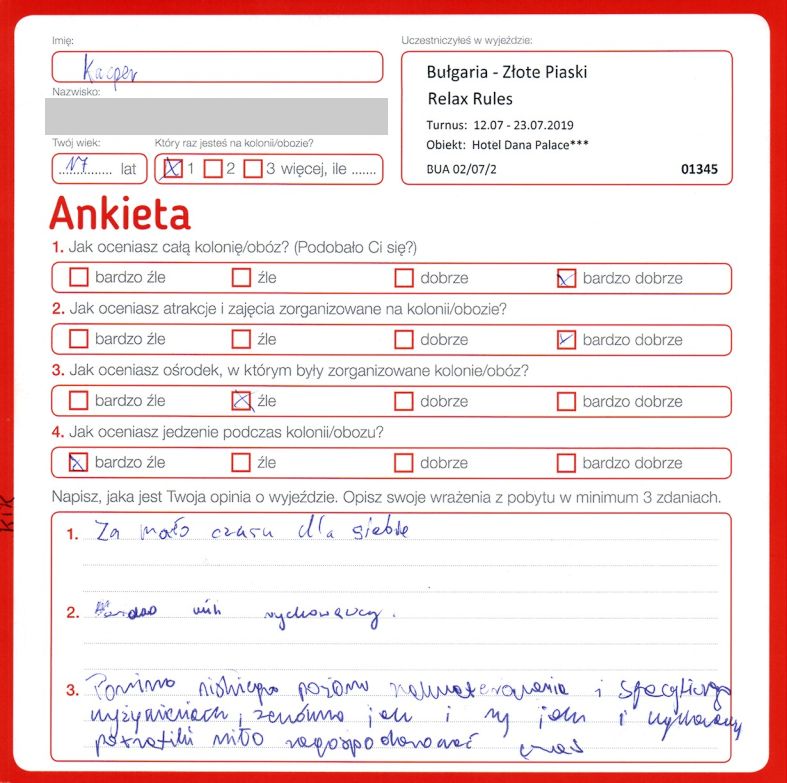 Imię:
Kacper
Nazwisko:
Twój wiek:
17 lat
Który raz jesteś na kolonii/obozie?
1 2 3 więcej, ile .......
Uczestniczyłeś w wyjeździe:
Bułgaria - Złote Piaski
Relax Rules
Turnus: 12.07 - 23.07.2019
Obiekt: Hotel Dana Palace***
BUA 02/07/2 01345
Ankieta
1. Jak oceniasz całą kolonię/obóz? (Podobało Ci się?)
bardzo źle źle dobrze bardzo dobrze
2. Jak oceniasz atrakcje i zajęcia zorganizowane na kolonii/obozie?
bardzo źle źle dobrze bardzo dobrze
3. Jak oceniasz ośrodek, w którym były zorganizowane kolonie/obóz?
bardzo źle źle dobrze bardzo dobrze
4. Jak oceniasz jedzenie podczas kolonii/obozu?
bardzo źle źle dobrze bardzo dobrze
Napisz, jaka jest Twoja opinia o wyjeździe. Opisz swoje wrażenia z pobytu w minimum 3 zdaniach.
1. Za mało czasu dla siebie
2. Bardzo mili wychowawcy.
3. Pomimo niskiego poziomu zakwaterowania i specyficznego
wyżywienia, zarówno jak i my jak i wychowawcy
potrafili miło zagospodarować czas
KIK